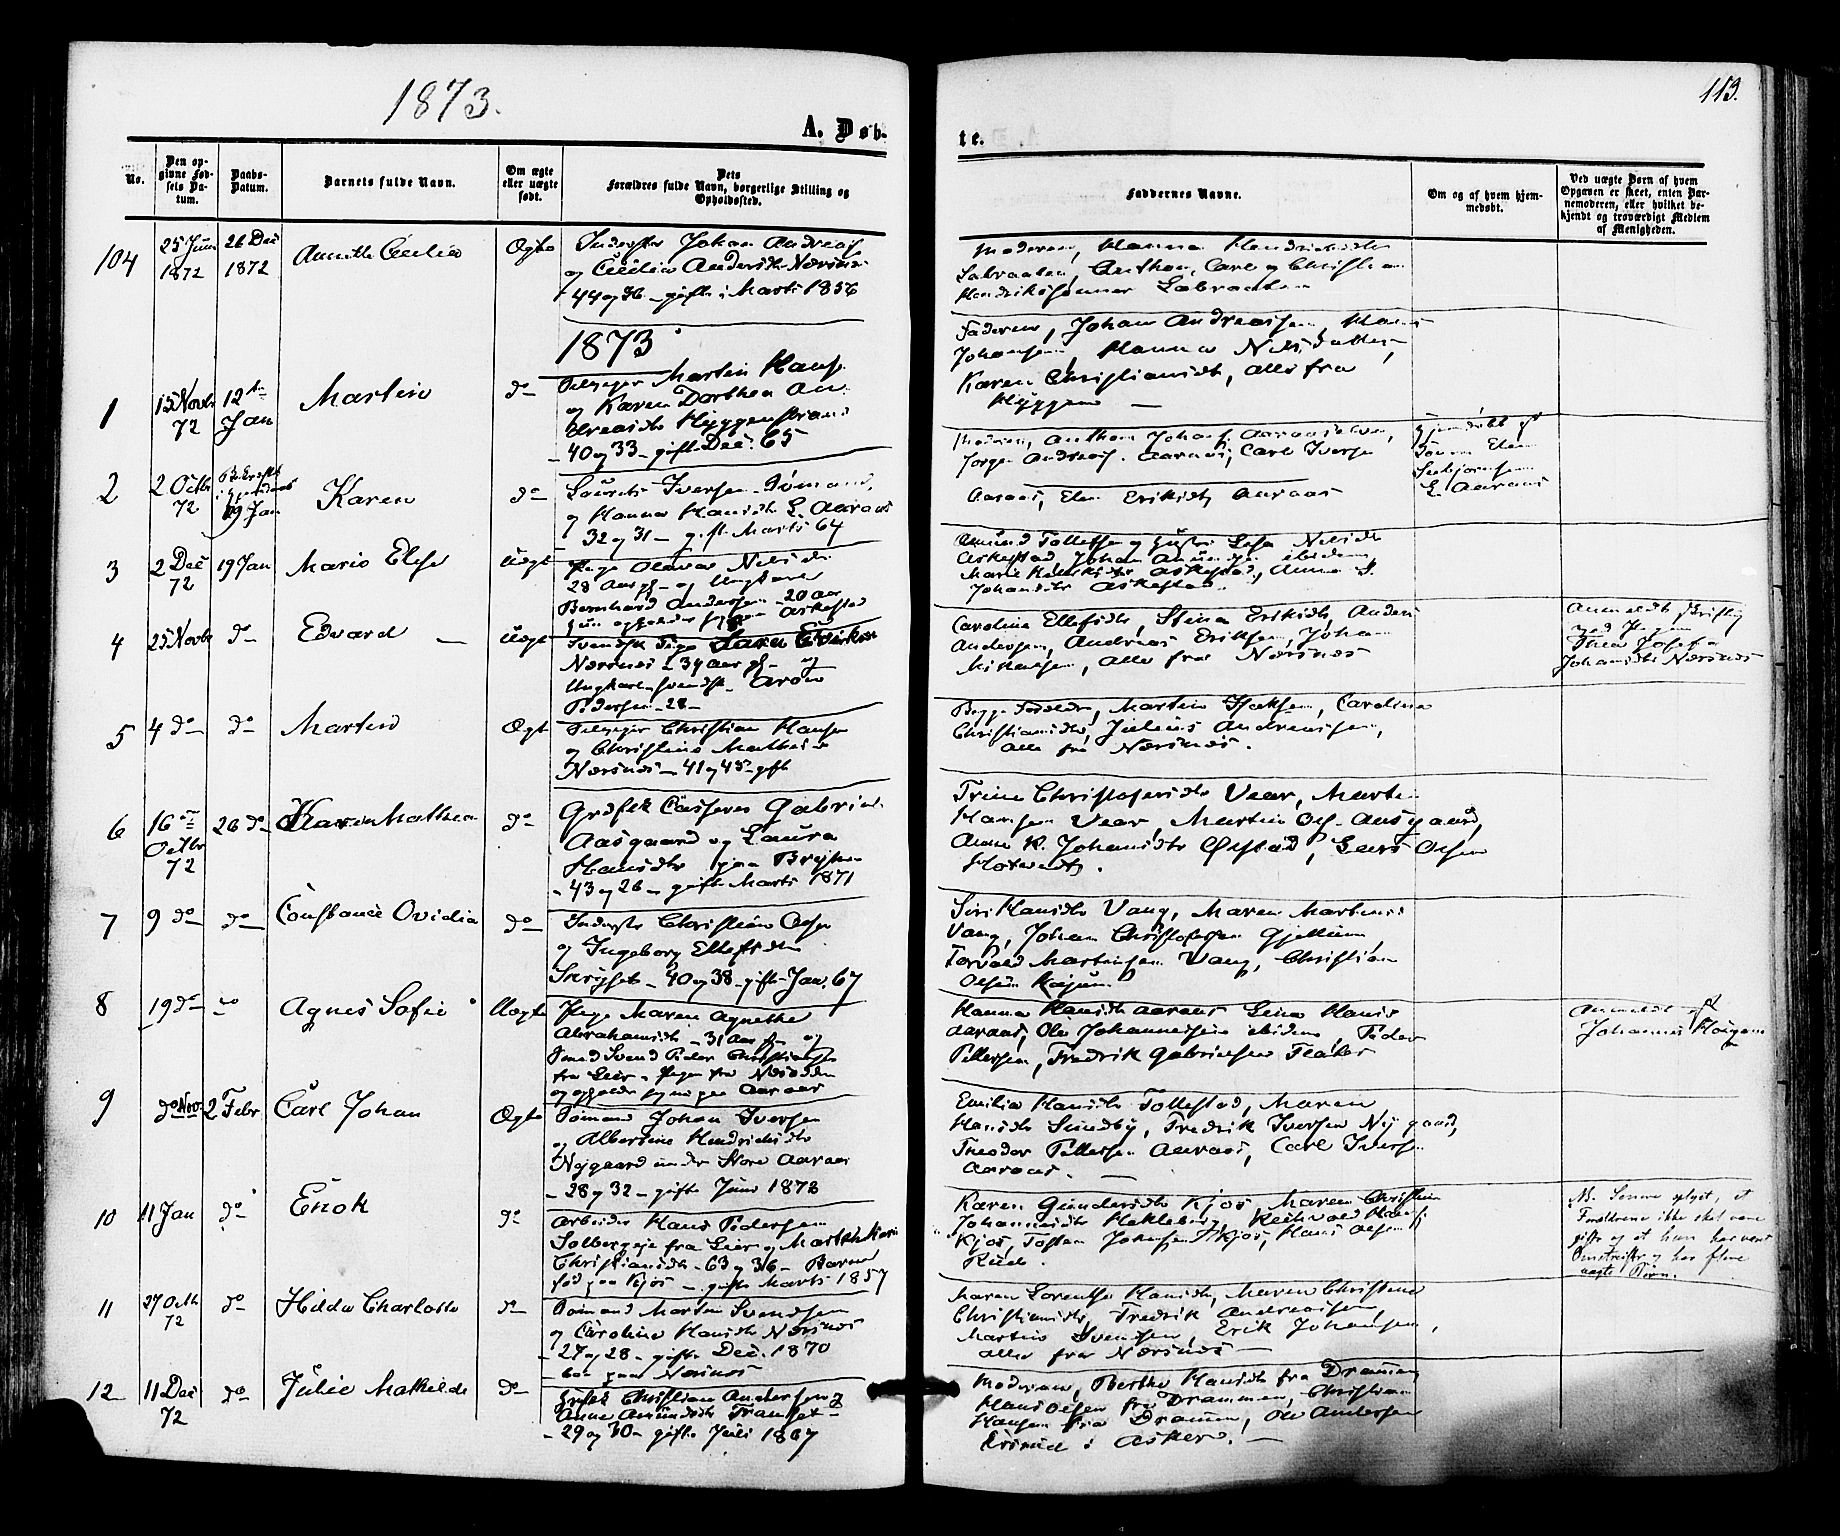 1873.
113.
A. Døb-
te.
No.
Den op-
givne Fød-
sels Da-
tum.
Daabs-
Datum.
Barnets fulde Navn.
Om ægte
eller uægte
født.
Dets
Forældres fulde Navn, borgerlige Stilling og
Opholdssted.
Faddernes Navne.
Om og af hvem hjem-
medøbt.
Ved uægte Børn af hvem
Opgaven er skeet, enten Bar-
nemoderen, eller hvilket be-
kjendt og troværdigt Medlem
af Menigheden.
104
25 Juni
1872
26 Dec
1872
Annette Cecilia
Ægte
Inderster Johan Andreas
og Cecilia Andersdtr Nærsnes
44 og 36 - gifte i Marts 1856
Moderen, Hanna Hendriksdtr
Labraaten, Anthon, Carl og Christian
Hendrikssønner Labraaten
1873
1
15 Novbr
72
12te
Jan
Martin
do
Selveier Martin Hans.
og Karen Dorthea An-
dreasdtr Hyggenstrand
40 og 33 - gifte Dec. 65
Faderen, Johan Andreassen, Hans
Johansen, Hanna Nilsdatter,
Karen Christiansdtr, alle fra
Hyggen —
2
2 Octbr
72
19 Jan
Karen
do
Laurits Iversen Tømmand,
og Hanna Hansdtr L. Aaraas
32 og 31 - gift Marts 64
Moderen, Anthon Johans. Aaraaseleven,
Jørgen Andreas. Aarnes, Carl Iversen
Aaraas, Elen Eriksdtr Aaraas
Hjemdøbt af
L. Aaraas
3
2 Dec
72
19 Jan
Marie Elise
Uægt
Pige Olava Nilsdtr
28 Aar gl. og Ungkarl
Bernhard Andersen 20 Aar
Askestad
Amund Tollefsen og Hustru Lisa Nilsdtr
Askestad, Johan Amunds. ibidem,
Marie Askestad, Anna
Johansdtr Askestad
4
25 Novbr
do
Edvard —
Uægt
Svensk Pige
Nærsnes - 34 Aar gl. og
Ungkarl svensk Aron
Pedersen - 28 -
Caroline Ellefsdtr, Stina Eriksdtr, Anders
Andersen, Andreas Eriksen, Johan
Mikaelsen, alle fra Nærsnes
Anmeldt skriftlig
ved Pigen
Thea Josefa
Johansdtr Nærsnes
5
4 do
do
Martin
Ægt
Selveier Christian Hansen
og Christine Mathisdtr
Nærsnes - 41 og 45 - gift
Begge Forældre, Martin Isaksen, Caroline
Christiansdtr, Julius Andreassen,
alle fra Nærsnes.
6
16de
Octbr
72
26 do
Karen Mathea
do
Grdfsk Casper Gabriel
Aasgaard og Laura
Hansdtr
- 43 og 26 - gifte Marts 1871
Trine Christofersdtr Vear, Martin
Hansen Vear Martin Ols. Aasgaard,
Anne K. Johansdtr Ørstad, Lars Olsen
Slotvedt.
7
9 do
do
Constance Ovidia
do
Inderste Christian Olsen
og Ingeborg Ellefsdtr
Skryset - 40 og 38 - gifte Jan. 67
Siri Hansdtr Vang, Maren Martinsdtr
Vang, Johan Christofersen Gjellum,
Torvald Martinsen Vang, Christian
Olsen
8
19 do
do
Agnes Sofie
Uægt
Pige Maren Agnethe
Abrahamsdtr - 31 Aar gl. og
Smed Svend Peder Christiansen
fra Lier - Pigen fra Næsodden
og opholder sig nu paa Aaraas
Hanna Hansdtr Aaraas Lina Hans
Aaraas, Ole Johannessen ibidem, Peder
Pettersen, Fredrik Gabrielsen
Anmeldt af
Johannes
9
do Nov
2 Febr
Carl Johan
Ægte
Tømmand Johan Iversen
og Albertine Hendriksdtr
Nygaard under Store Aaraas
- 28 og 32 - gifte Juni 1872
Emilia Hansdtr Tollestad, Maren
Hansdtr Sundby, Fredrik Iversen Nygaard,
Theodor Pettersen Aaraas, Carl Iversen
Aaraas. —
10
11 Jan
do
Enok
do
Arbeider Hans Pedersen
Solbergeie fra Lier og Marthe Karin
Christiansdtr - 63 og 36 - Barnet
fød paa Kjos - gifte Marts 1857
Karen Gundersdtr Kjos, Maren Christine
Johannesdtr Hekleberg,
Kjos, Tosten Johansen Kjos, Hans Olsen
Rud.
NB. Senere oplyst, at
Forældrene ikke skal være
gifte og at hun har været
Omstreifer og har flere
uægte Børn.
11
27 Octb
72
do
Hilda Charlotte
do
Tømmand Morten Svendsen
og Caroline Hansdtr Nærsnes
- 27 og 28 - gifte Dec. 1870
boe paa Nærsnes
Maren Lorentse Hansdtr, Maren Christine
Christiansdtr, Fredrik Andreassen,
Martin Svensen, Erik Johansen,
alle fra Nærsnes —
12
11 Dec
72
do
Julie Mathilde
do
Grdfsk Christian Andersen og
Anne Amundsdtr Transet
- 29 og 30 - gifte Juli 1867
Moderen, Berthe Hansdtr fra Drammen
Hans Olsen fra Drammen, Christian
Hansen fra Drammen, Ole Andersen
i Asker. —